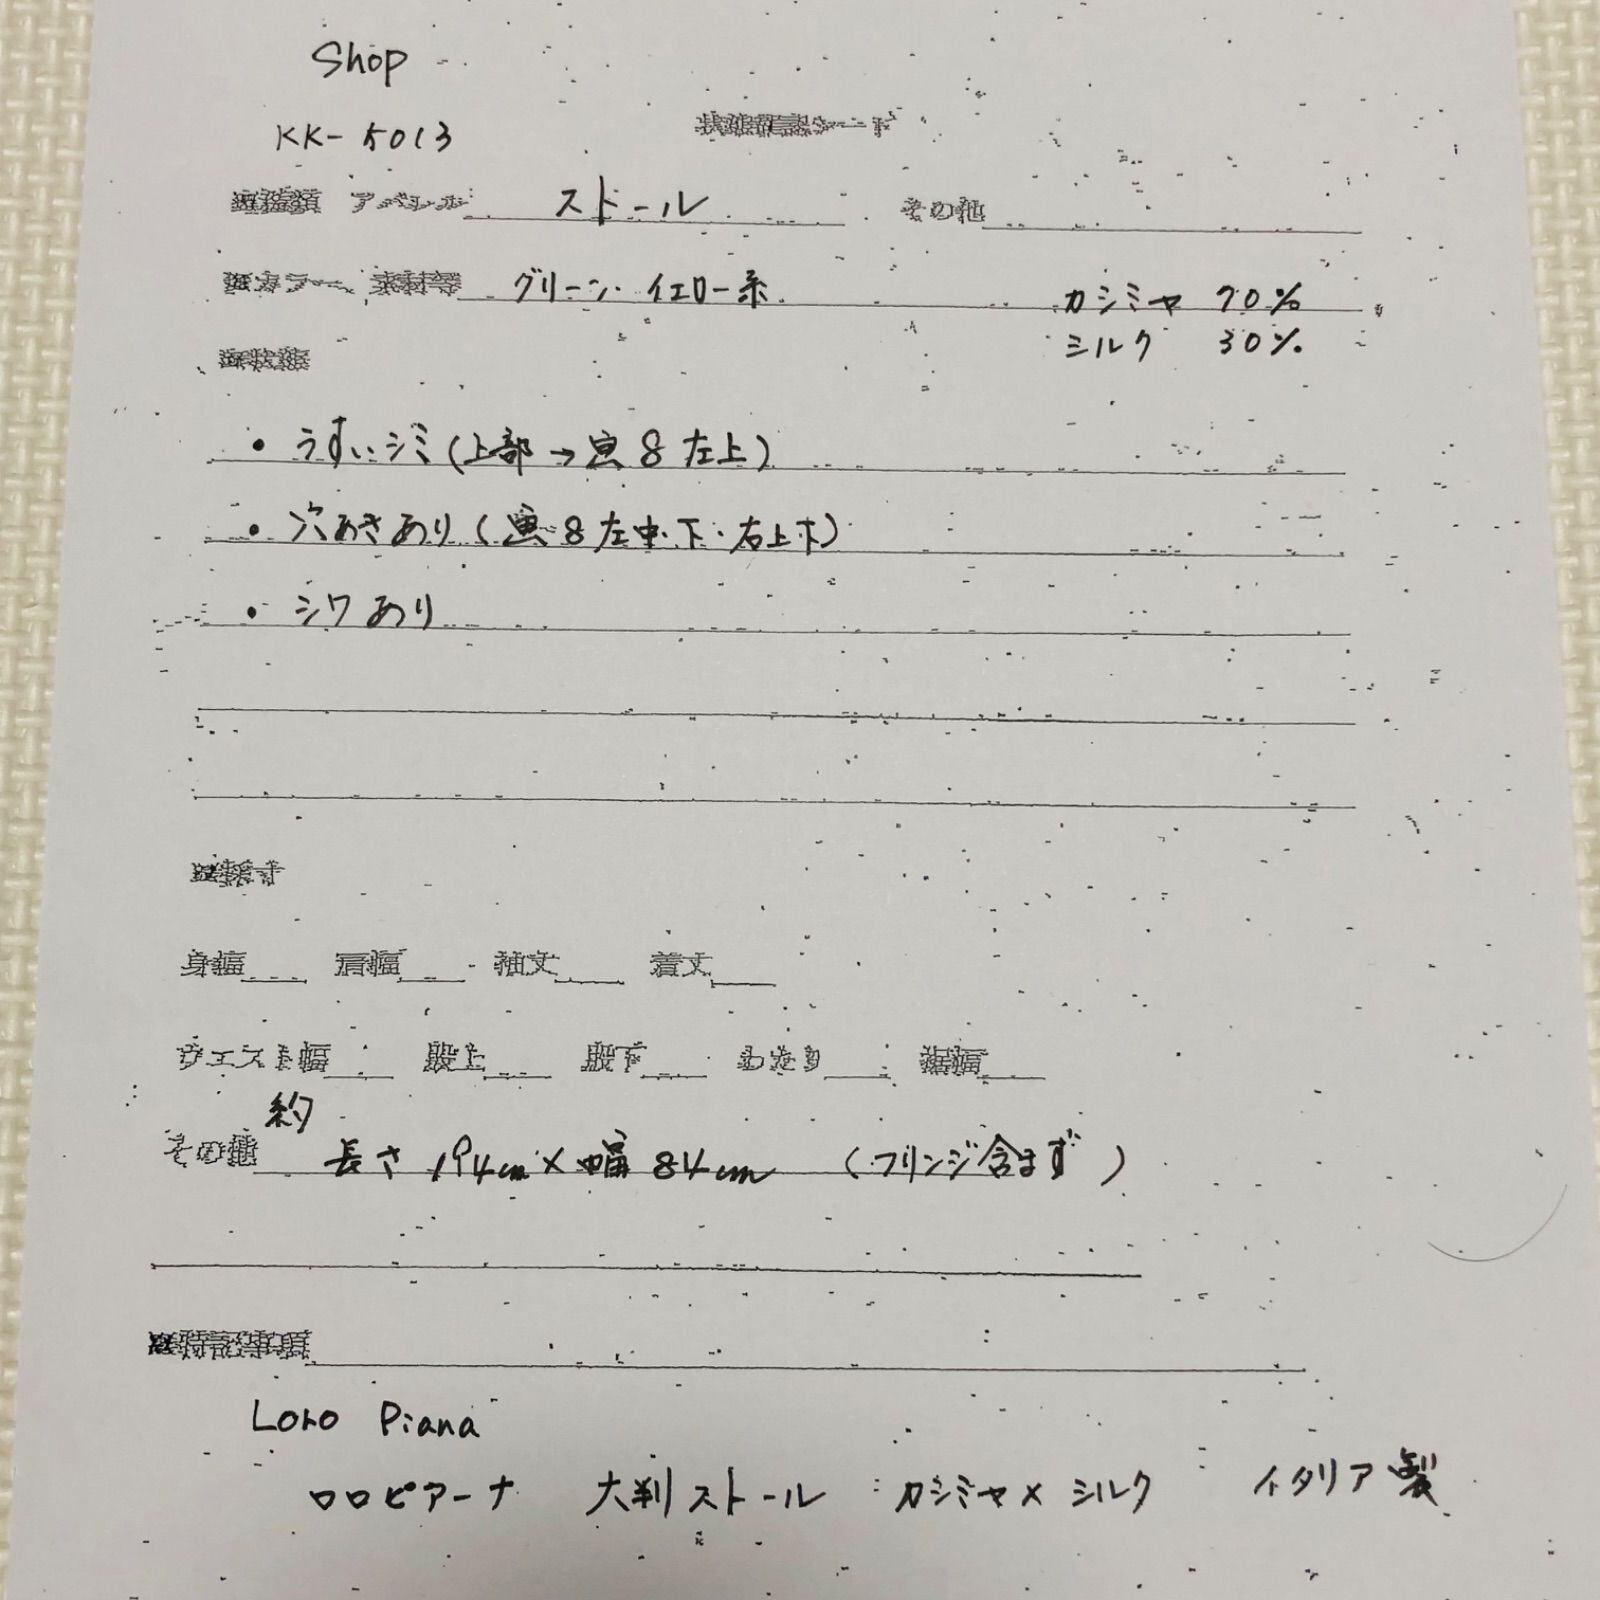 Shop
KK-5013
状態確認シート
アパレル ストール その他
カラー、素材等 グリーン・イエロー系 カシミヤ 70%
シルク 30%
※状態
・うすいシミ(上部→写8左上)
・穴あきあり(写8左中・下・右上下)
・シワあり
※採寸
身幅 肩幅 袖丈 着丈
ウエスト幅 股上 股下 わたり 裾幅
約
その他 長さ 194cm×幅84cm (フリンジ含まず)
※特記事項
Loro Piana
ロロピアーナ 大判ストール カシミヤ×シルク イタリア製